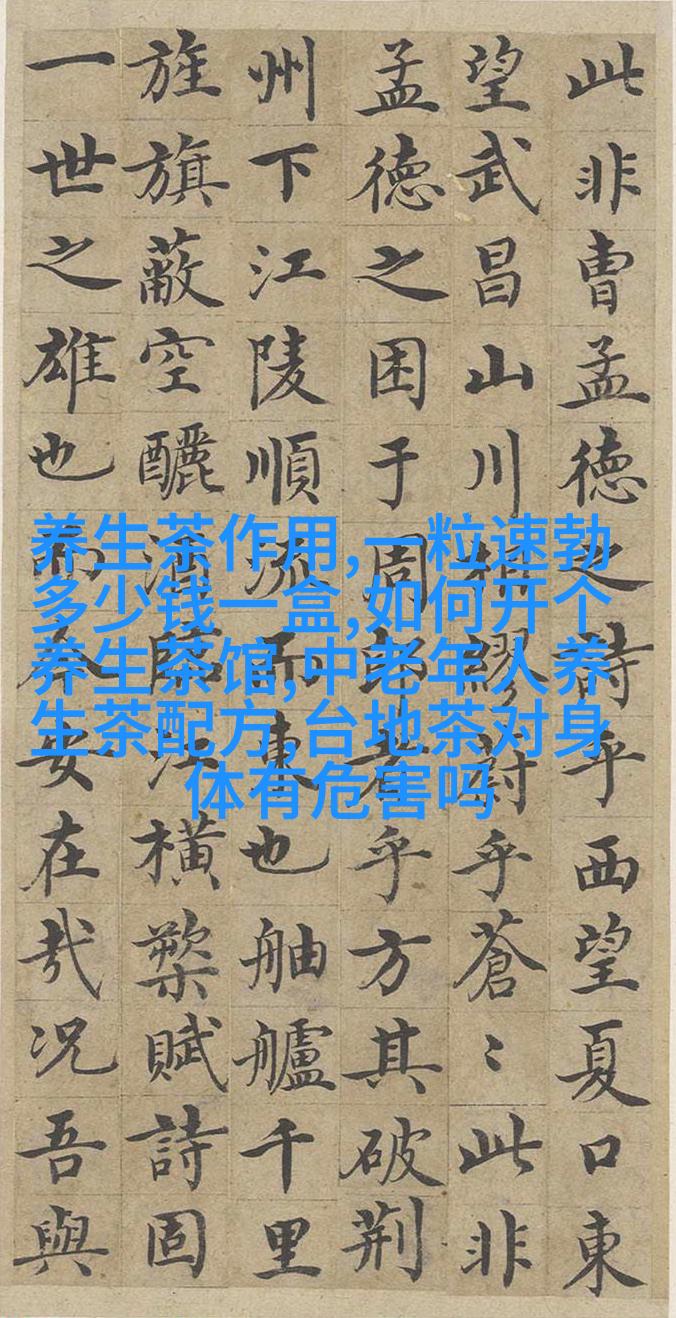 此非曹孟德之詩乎西望夏口東
望武昌山川相繆蔚乎蒼〻此非
孟德之困于周郎者乎方其破荊
州下江陵順流而東也舳艫千里
旌旗蔽空釃酒臨江橫槊賦詩固
一世之雄也而今安在哉況吾與
养生茶作用,一粒速勃
多少钱一盒,如何开个
养生茶馆,中老年人养
生茶配方,台地茶对身
体有危害吗